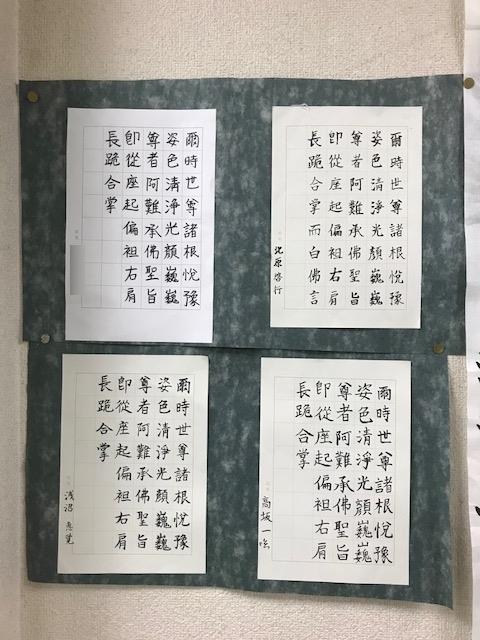 爾時世尊諸根悅豫
姿色清淨光顏巍巍
尊者阿難承佛聖旨
即從座起偏袒右肩
長跪合掌而白佛言
爾時世尊諸根悅豫
姿色清淨光顏巍巍
尊者阿難承佛聖旨
即從座起偏袒右肩
長跪合掌
爾時世尊諸根悅豫
姿色清淨光顏巍巍
尊者阿難承佛聖旨
即從座起偏袒右肩
長跪合掌
高坂
爾時世尊諸根悅豫
姿色清淨光顏巍巍
尊者阿難承佛聖旨
即從座起偏袒右肩
長跪合掌
浅沼